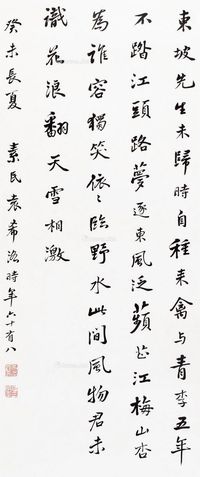 東坡先生未歸時自種来禽与青李五年
不踏江頭路夢逐東風泛蘋芷江梅山杏
為誰容獨笑依〻臨野水此間風物君未
識花浪翻天雪相激
癸未長夏 素民袁希濂時年六十有八